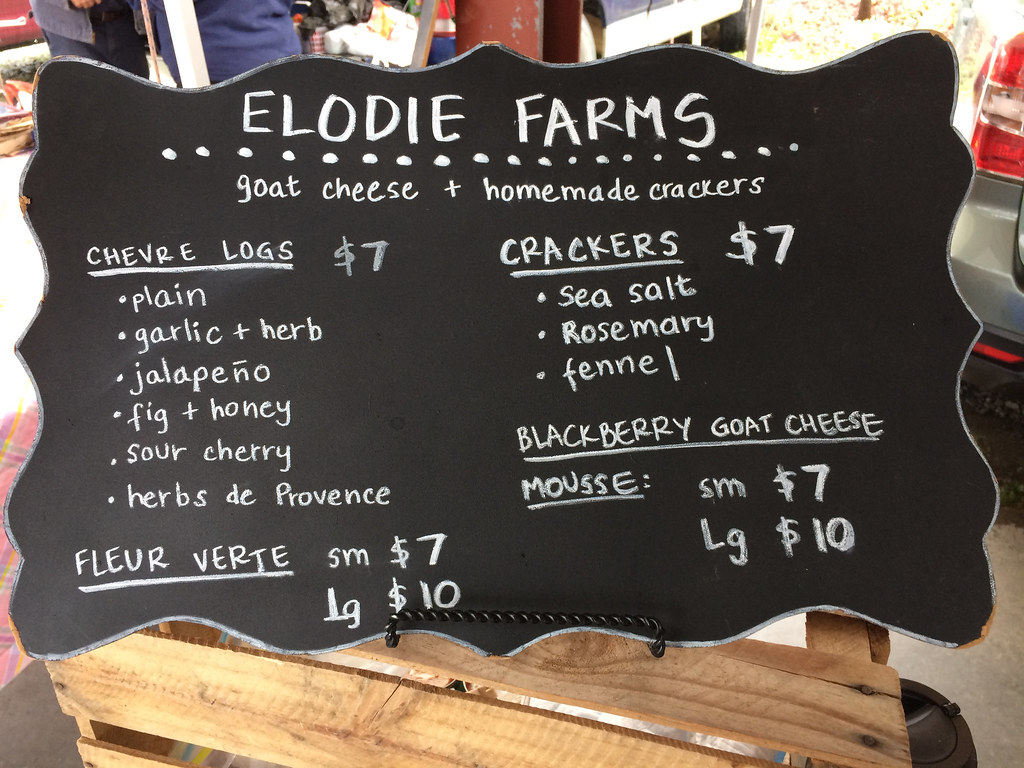 ELODIE FARMS
goat cheese + homemade crackers
CHEVRE LOGS $7
• plain
• garlic + herb
• jalapeño
• fig + honey
• sour cherry
• herbs de Provence
FLEUR VERTE sm $7
lg $10
CRACKERS $7
• sea salt
• Rosemary
• fennel
BLACKBERRY GOAT CHEESE
MOUSSE: sm $7
Lg $10